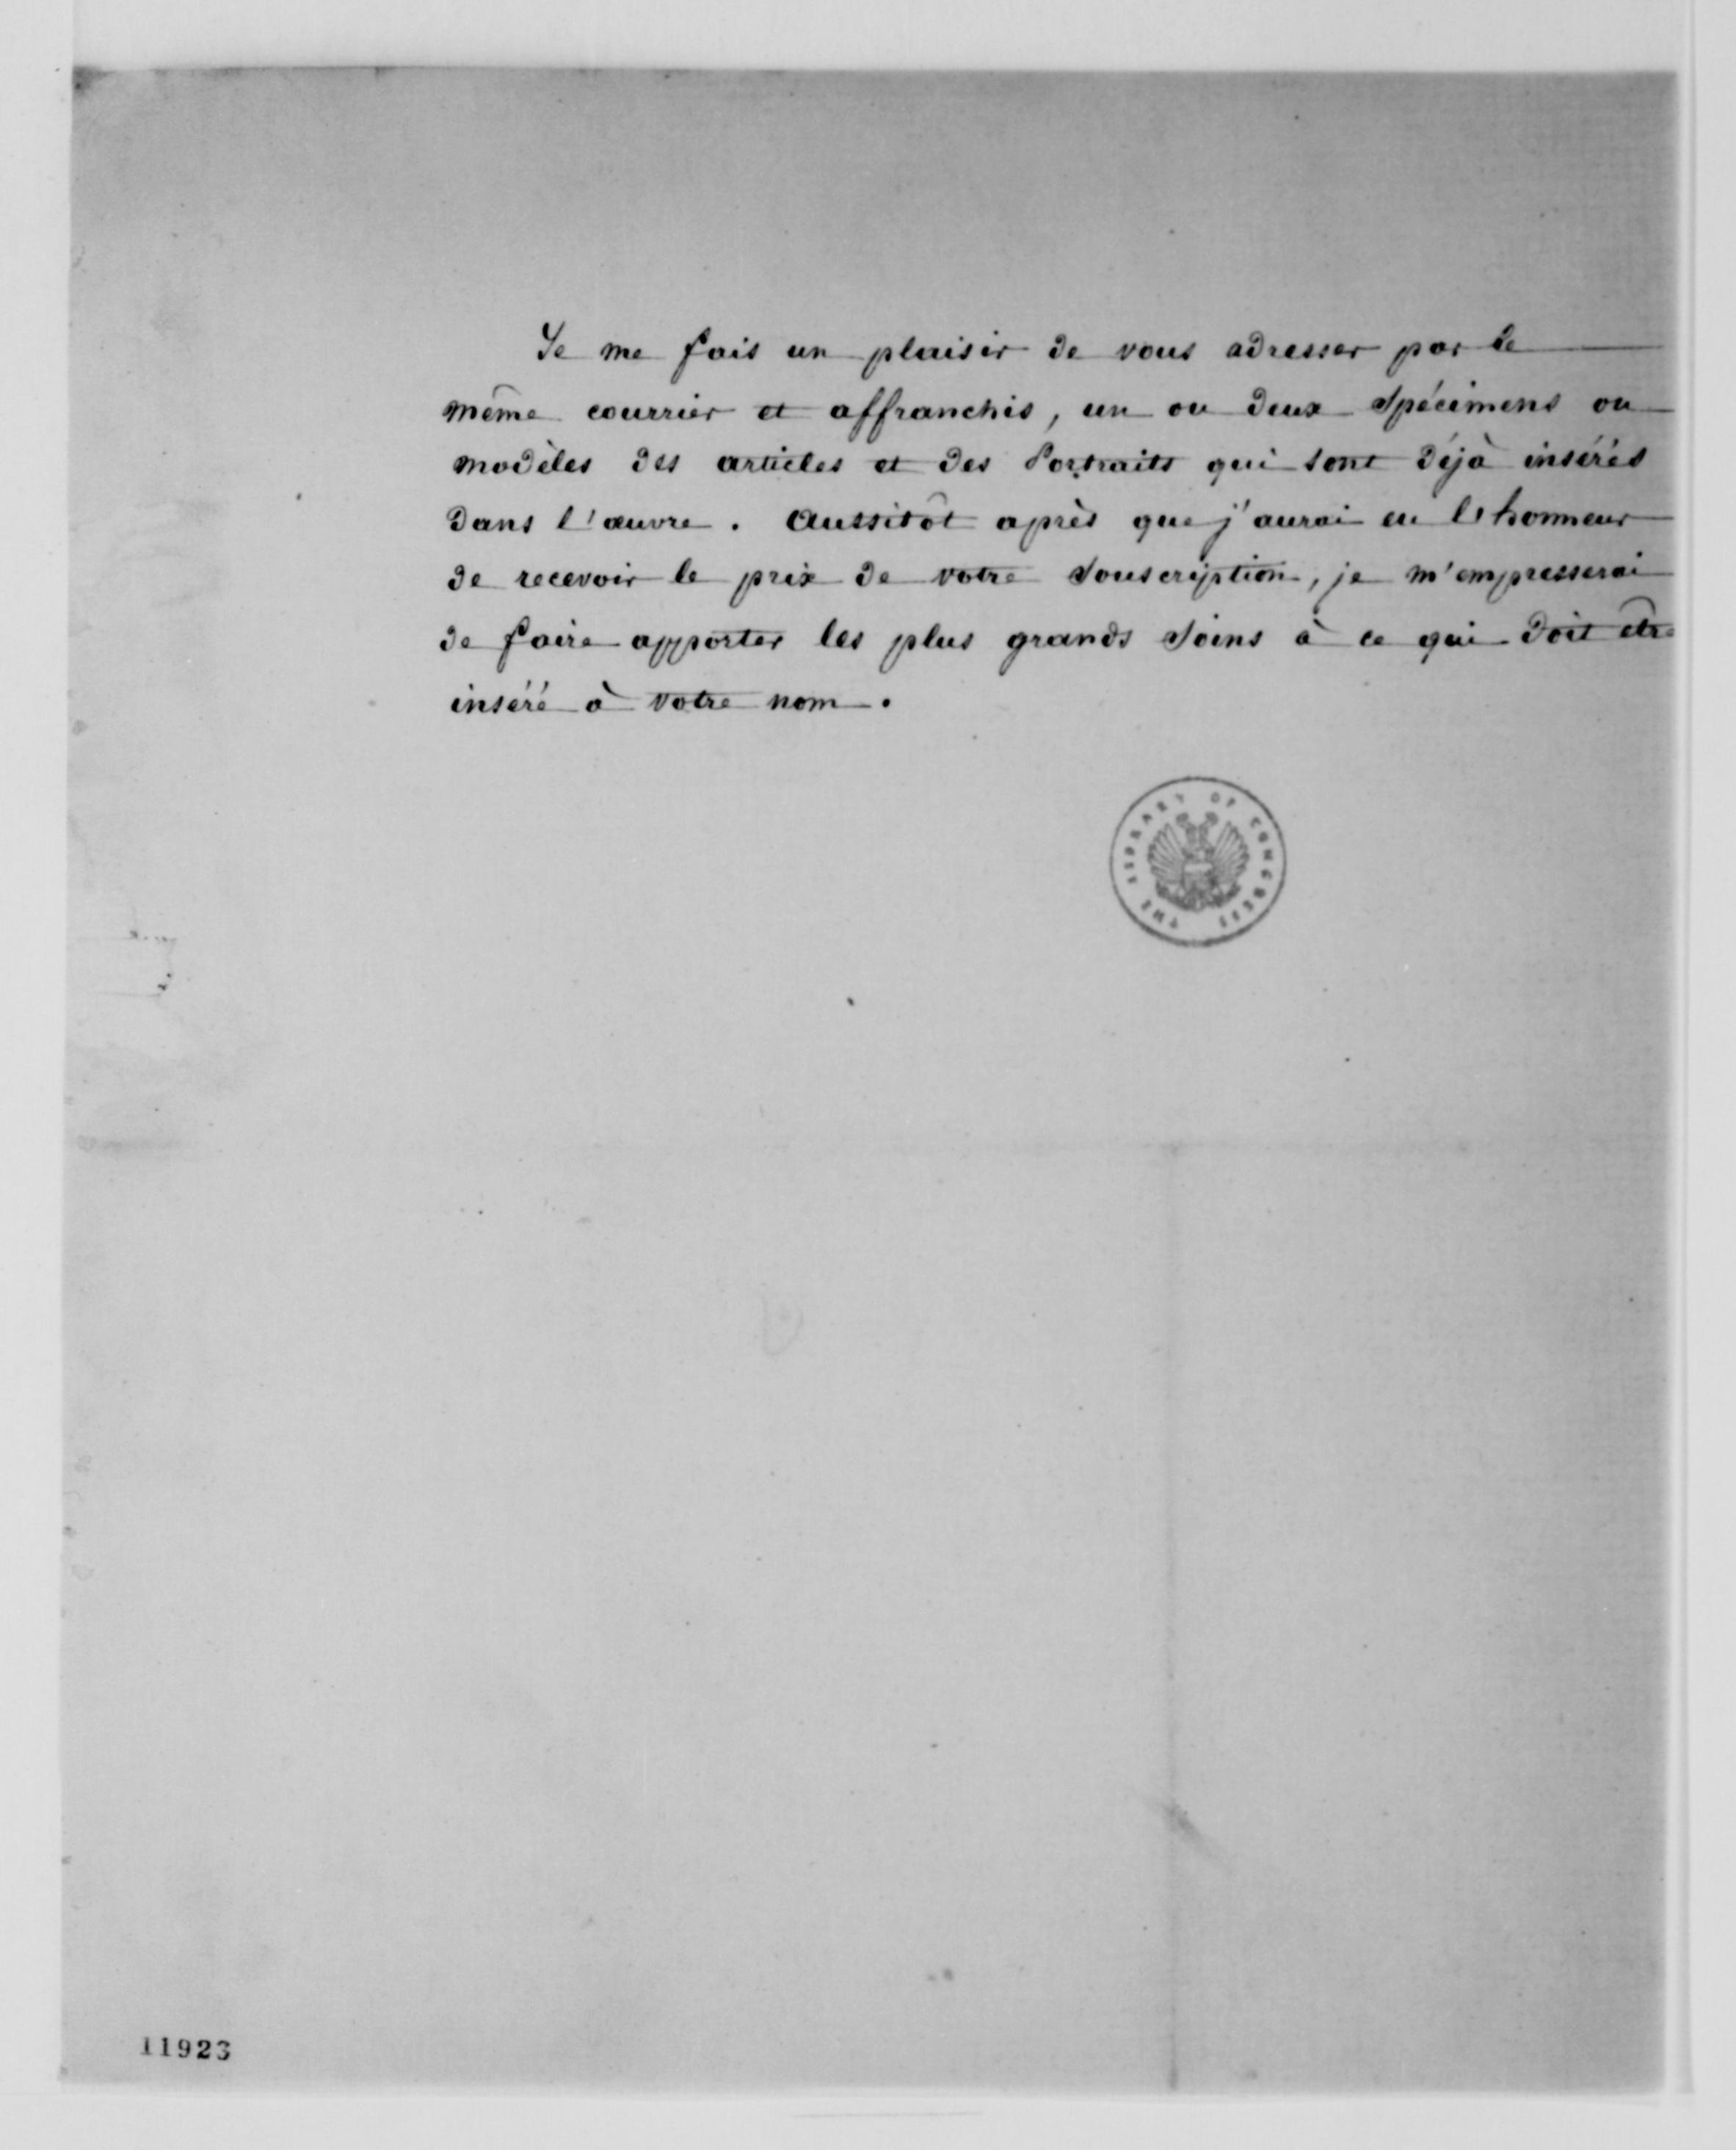 Je me fais un plaisir de vous adresser par le
même courrier et affranchis, un ou deux Spécimens ou
modèles des articles et des Portraits qui sont déjà insérés
dans l'œuvre. Aussitôt après que j'aurai eu l'honneur
de recevoir le prix de votre Souscription, je m'empresserai
de faire apporter les plus grands soins à ce qui doit être
inséré à votre nom.
THE LIBRARY OF CONGRESS
11923